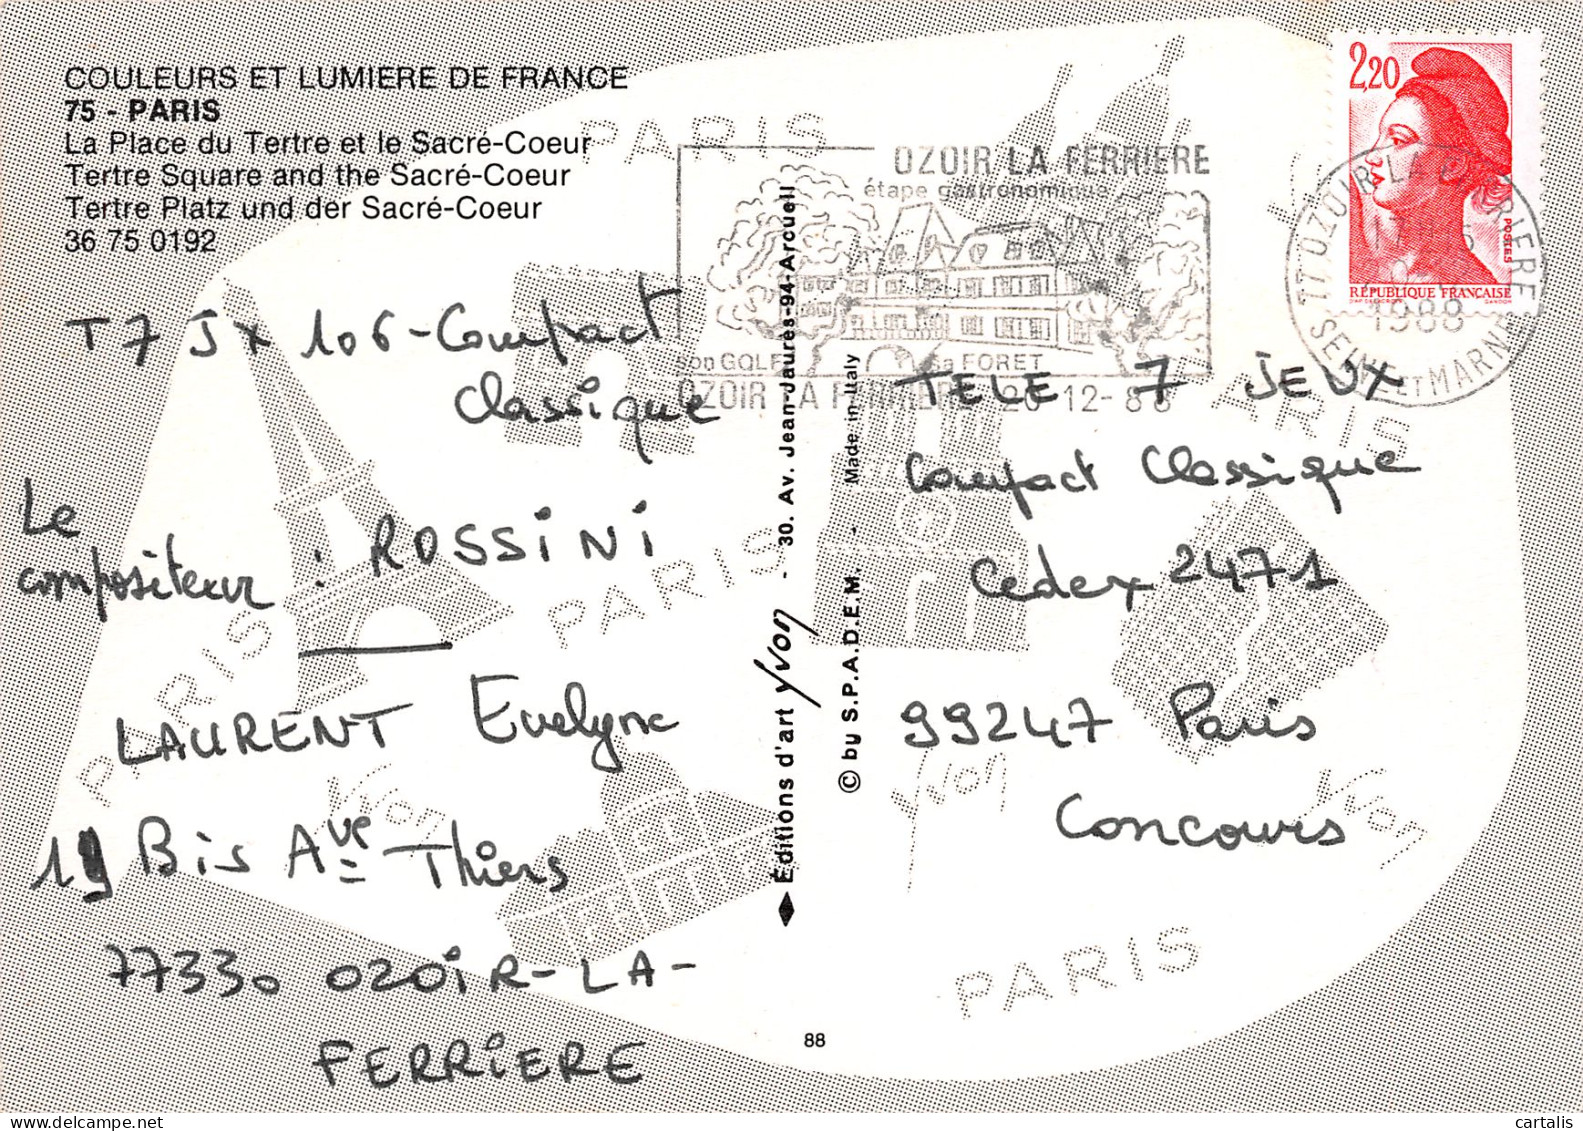 COULEURS ET LUMIERE DE FRANCE
75 - PARIS
La Place du Tertre et le Sacré-Coeur
Tertre Square and the Sacré-Coeur
Tertre Platz und der Sacré-Coeur
36 75 0192
T7 Jx 106 - Compact
Classique
Le
compositeur : ROSSINI
LAURENT Evelyne
19 Bis Ave Thiers
77330 OZOIR-LA-
FERRIERE
Editions d'art Yvon - 30. Av. Jean-Jaurès-94-Arcueil
© by S.P.A.D.E.M. - Made in Italy
88
OZOIR LA FERRIERE
étape gastronomique
son GOLF sa FORET
OZOIR LA FERRIERE 20-12-88
2,20
POSTES
RÉPUBLIQUE FRANÇAISE
77 OZOIR LA FERRIERE
1988
SEINE ET MARNE
TELE 7 JEUX
Compact Classique
Cedex 2471
99247 Paris
Concours
PARIS
PARIS
PARIS
PARIS
PARIS
Yvon
Yvon
Yvon
delcampe.net
cartalis